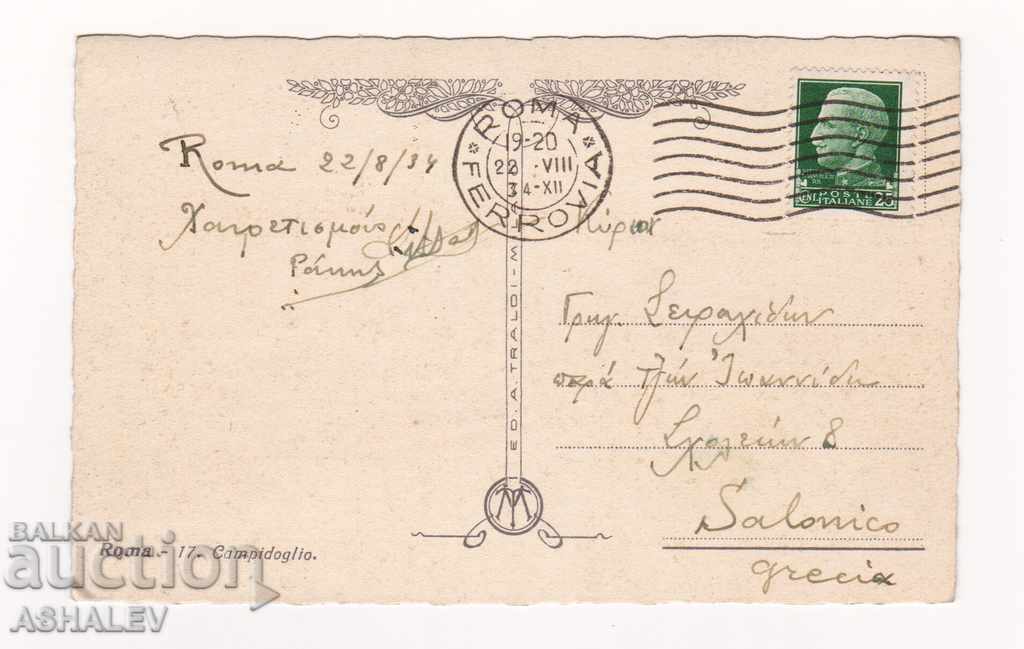 Roma 22/8/34
Χαιρετισμούς
Ράκης
ROMA
FERROVIA
19-20
22 .VIII
34-XII
POSTE
ITALIANE
CENT. 25
Κύριον
Γρηγ.
παρά τζην Ἰωαννίδη
8
Salonico
Grecia
ED. A. TRALDI - M
Roma. - 17. Campidoglio.
BALKAN
auction
ASHALEV